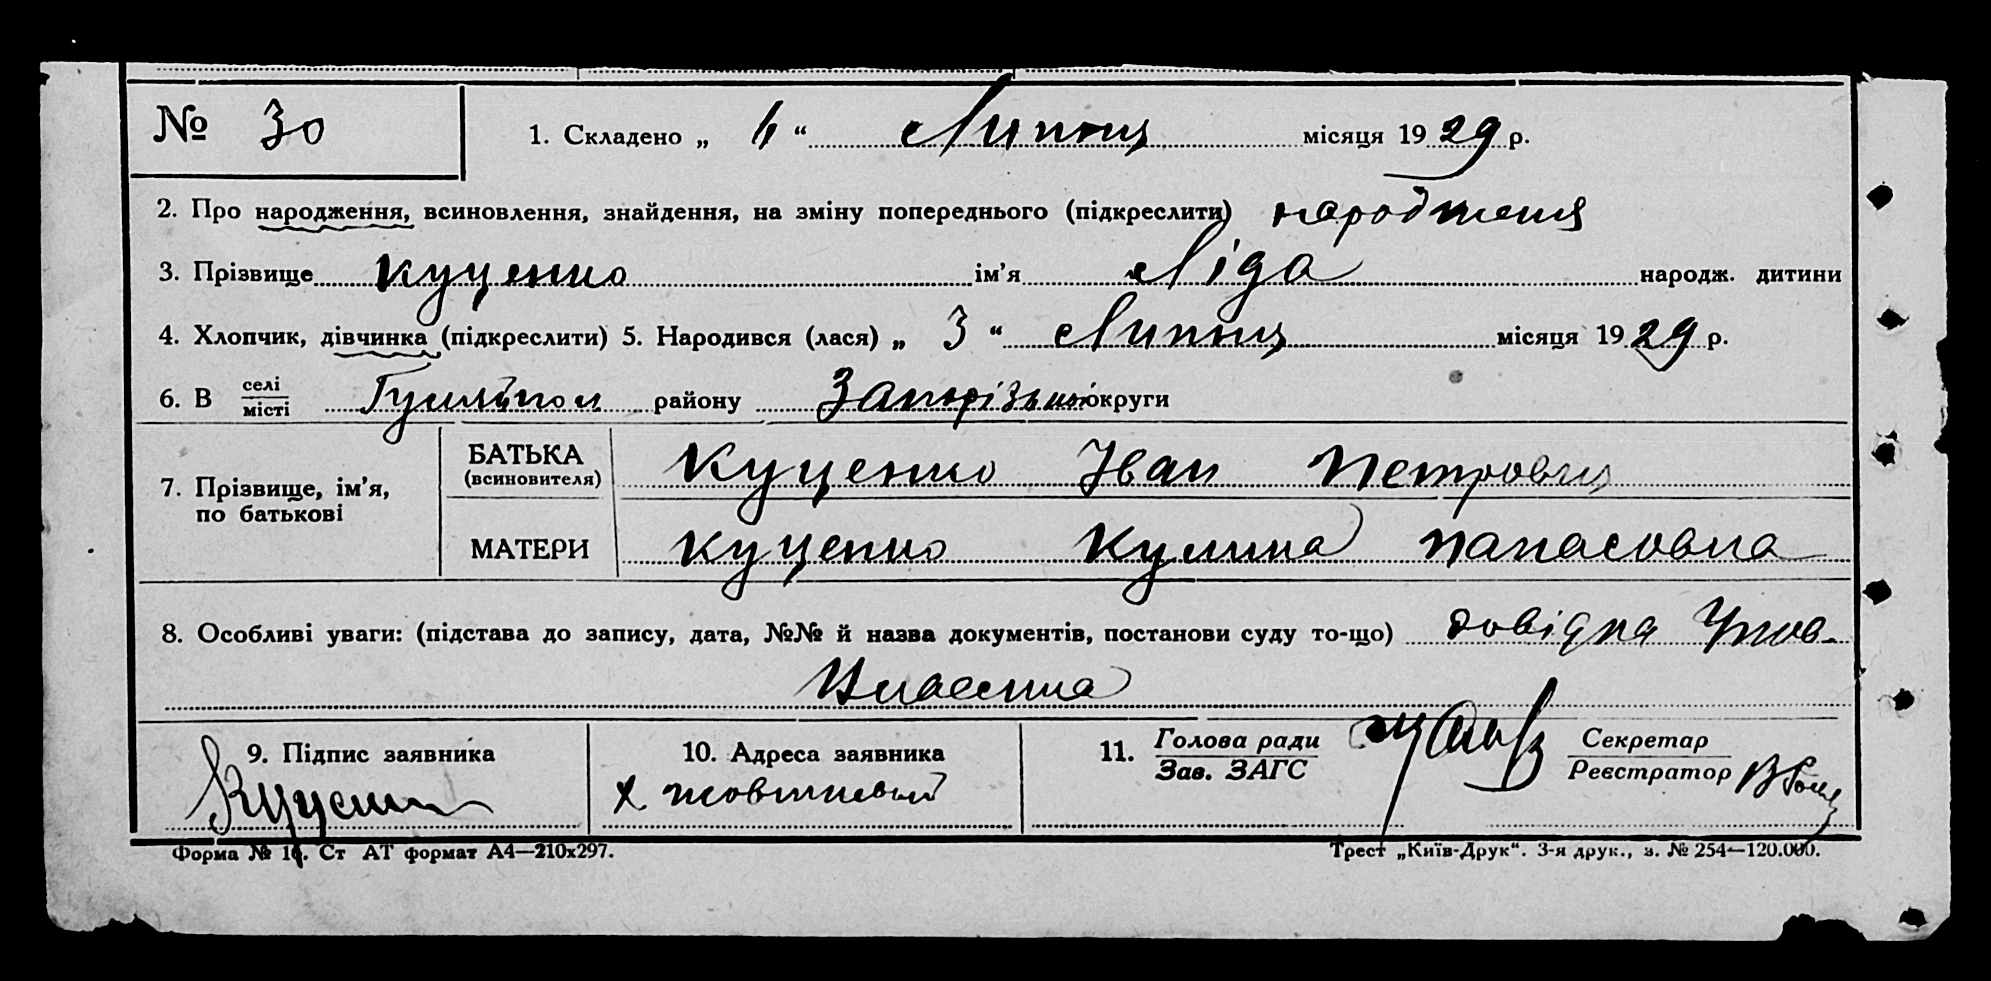 № 30 1. Складено „ 4 “ Липня місяця 1929 р.
2. Про народження, всиновлення, знайдення, на зміну попереднього (підкреслити) народження
3. Прізвище Куценко ім’я Ліда народж. дитини
4. Хлопчик, дівчинка (підкреслити) 5. Народився (лася) „ 3 “ Липня місяця 1929 р.
6. В селі місті Гуляйпол району Запорізької округи
7. Прізвище, ім’я, по батькові
БАТЬКА (всиновителя) Куценко Іван Петрович
МАТЕРИ Куценко Кулина Панасовна
8. Особливі уваги: (підстава до запису, дата, №№ й назва документів, постанови суду то-що) довідка Упов.
9. Підпис заявника
Куценко
10. Адреса заявника
х Жовтневый
11. Голова ради Зав. ЗАГС
Секретар Реєстратор
Форма № 1а. Ст АТ формат А4—210х297.
Трест „Київ-Друк“. 3-я друк., з. № 254—120.000.